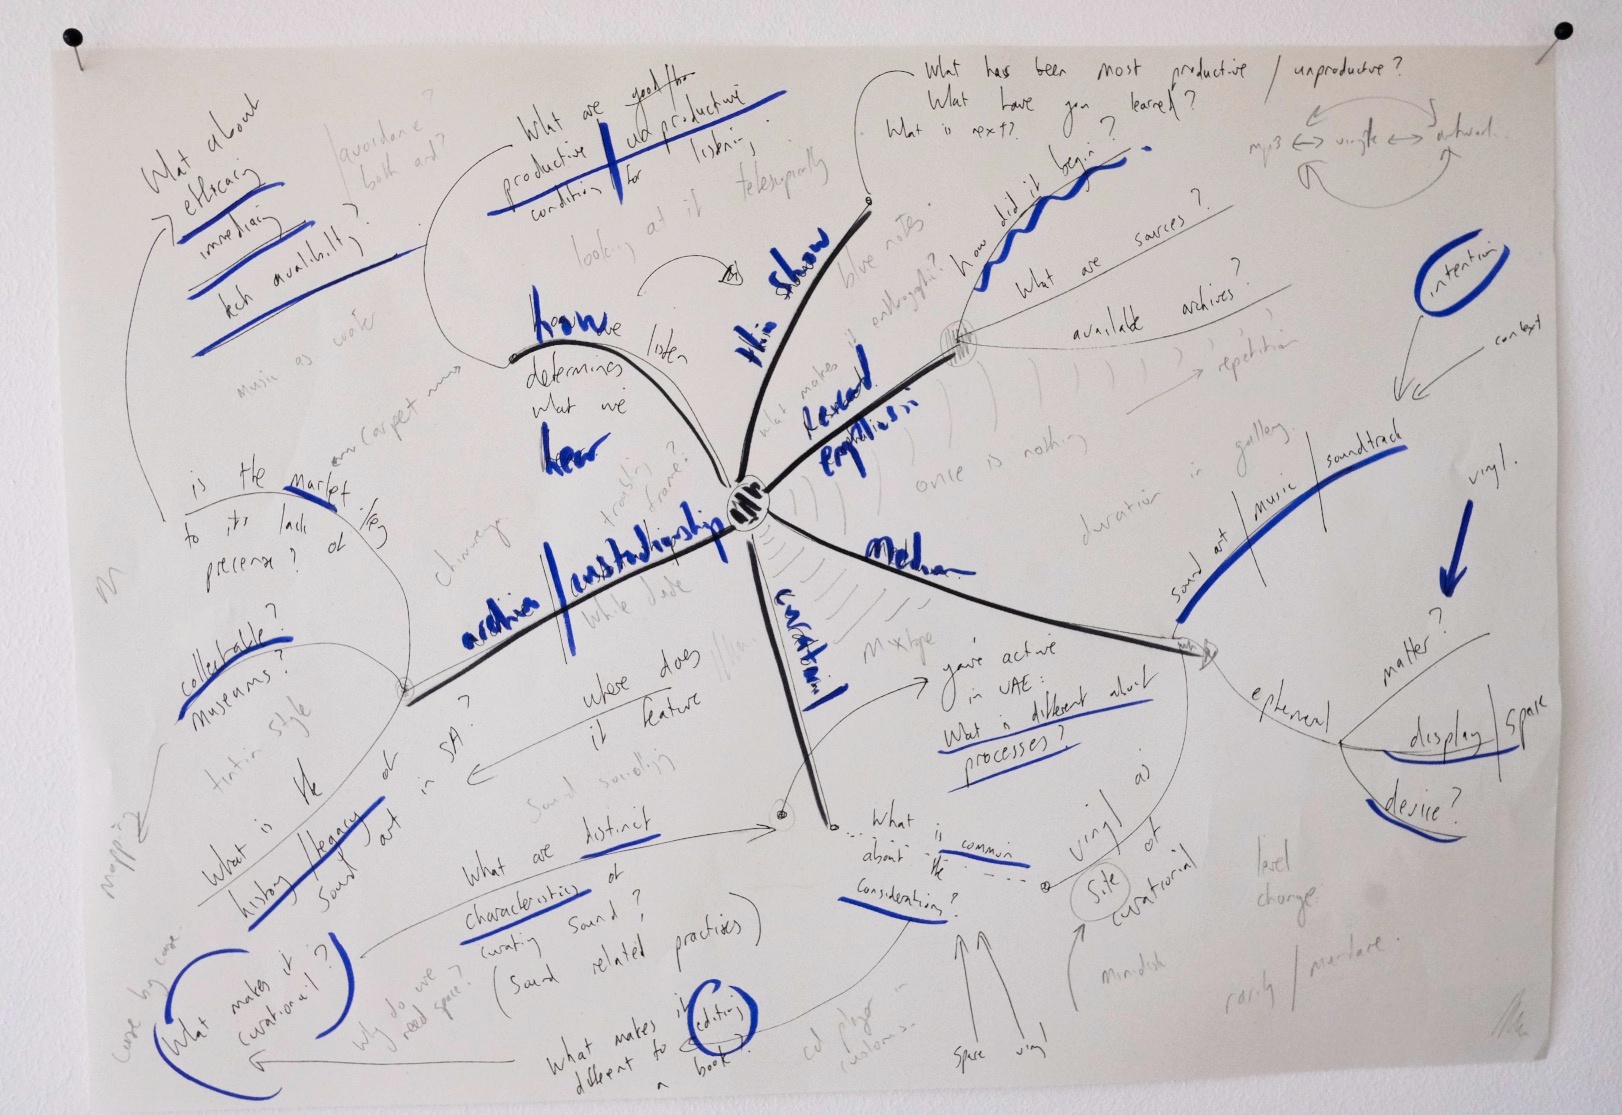 What about
efficacy
immediacy
tech avalibilty?
/avoidance?
both and?
What are good for
productive / unproductive
condition for listening
looking at it telescopically
What has been most productive / unproductive?
What have you learned?
What is next?
mp3 ↔ vinyl ↔ network
how did it begin?
What are sources?
available archives?
→ repetition
blue notes.
what makes it ethnographic?
intention
context
this show
how
how we listen
determines
what we
hear
research
emphasis
once is nothing
duration in gallery.
sound art / music / soundtrack
vinyl.
music as
carpet
is the market key
to its lack of
presence?
archive / custodianship
frame?
Medium
curatorial
Mixtape
collectable?
museums?
tintin style
mapping
where does
it feature
Sound sociology
What is the
history / legacy of
Sound art in SA?
you're active
in UAE:
What is different about
processes?
ephemeral
matter?
display / space
device?
What are distinct
characteristics of
curating sound?
(Sound related practises)
What is common
about the
considerations?
vinyl as
site of
curatorial
level
change
minidisk
rarity /
case by case.
What makes it
curatorial?
why do we
need space?
What makes it
different to editing
a book?
cd player
space vinyl